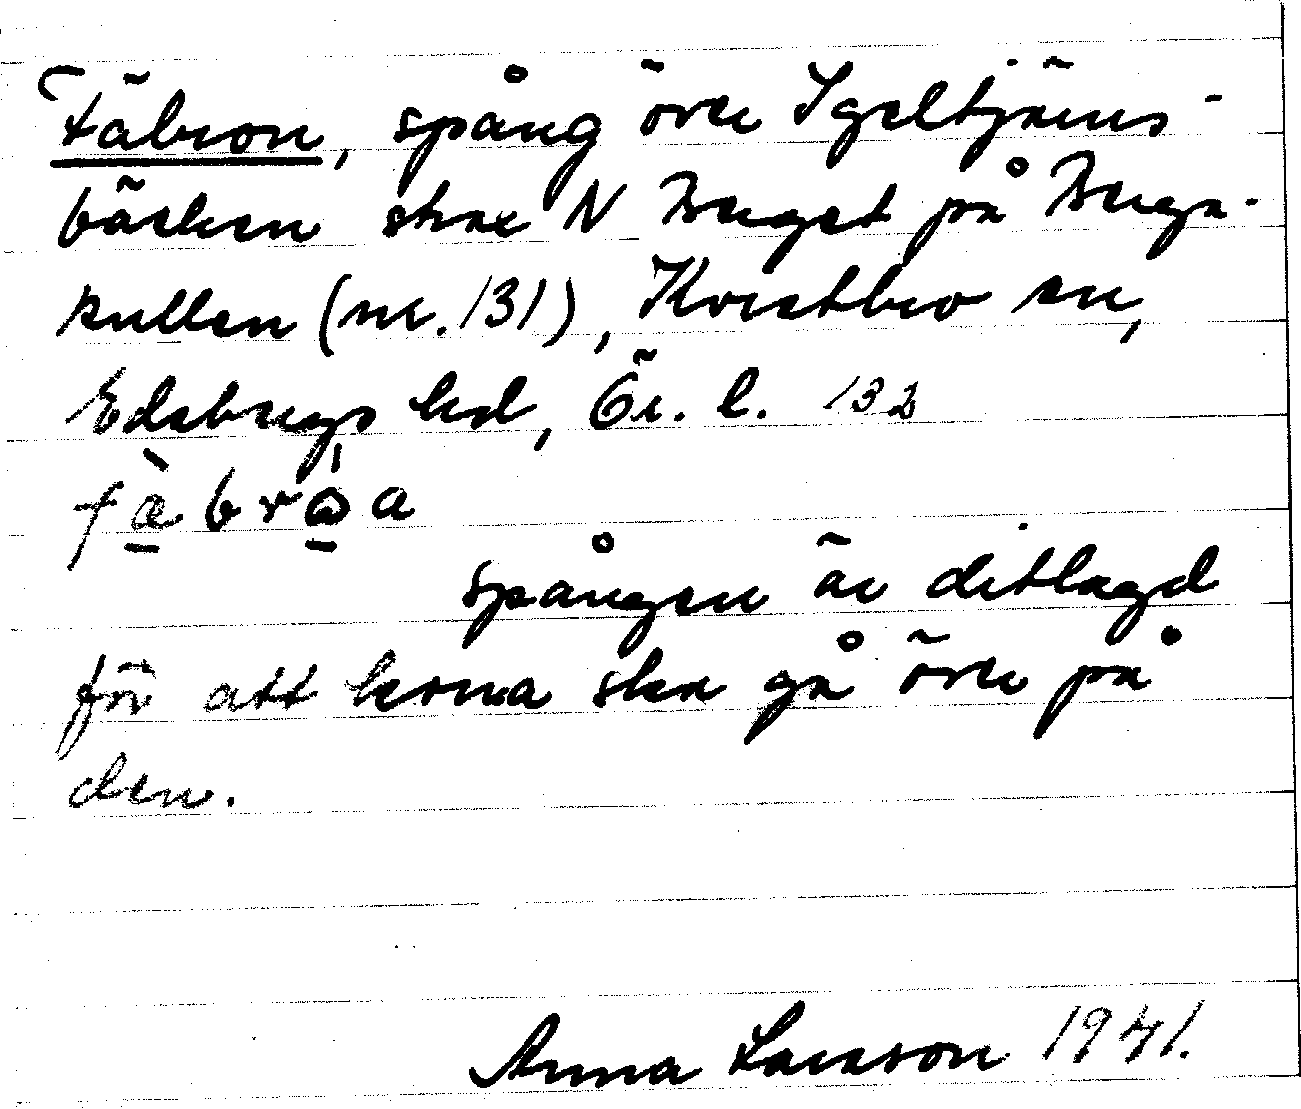 Fäbron, spång över Igeltjärns-
bäcken strax N Berget på Berga-
kullen (nr. 131), Kvistbro sn,
Edsbergs hd, Ör. l. 132
fäbròa
spången är ditlagd
för att korna ska gå över på
den.
Anna Larsson 1941.